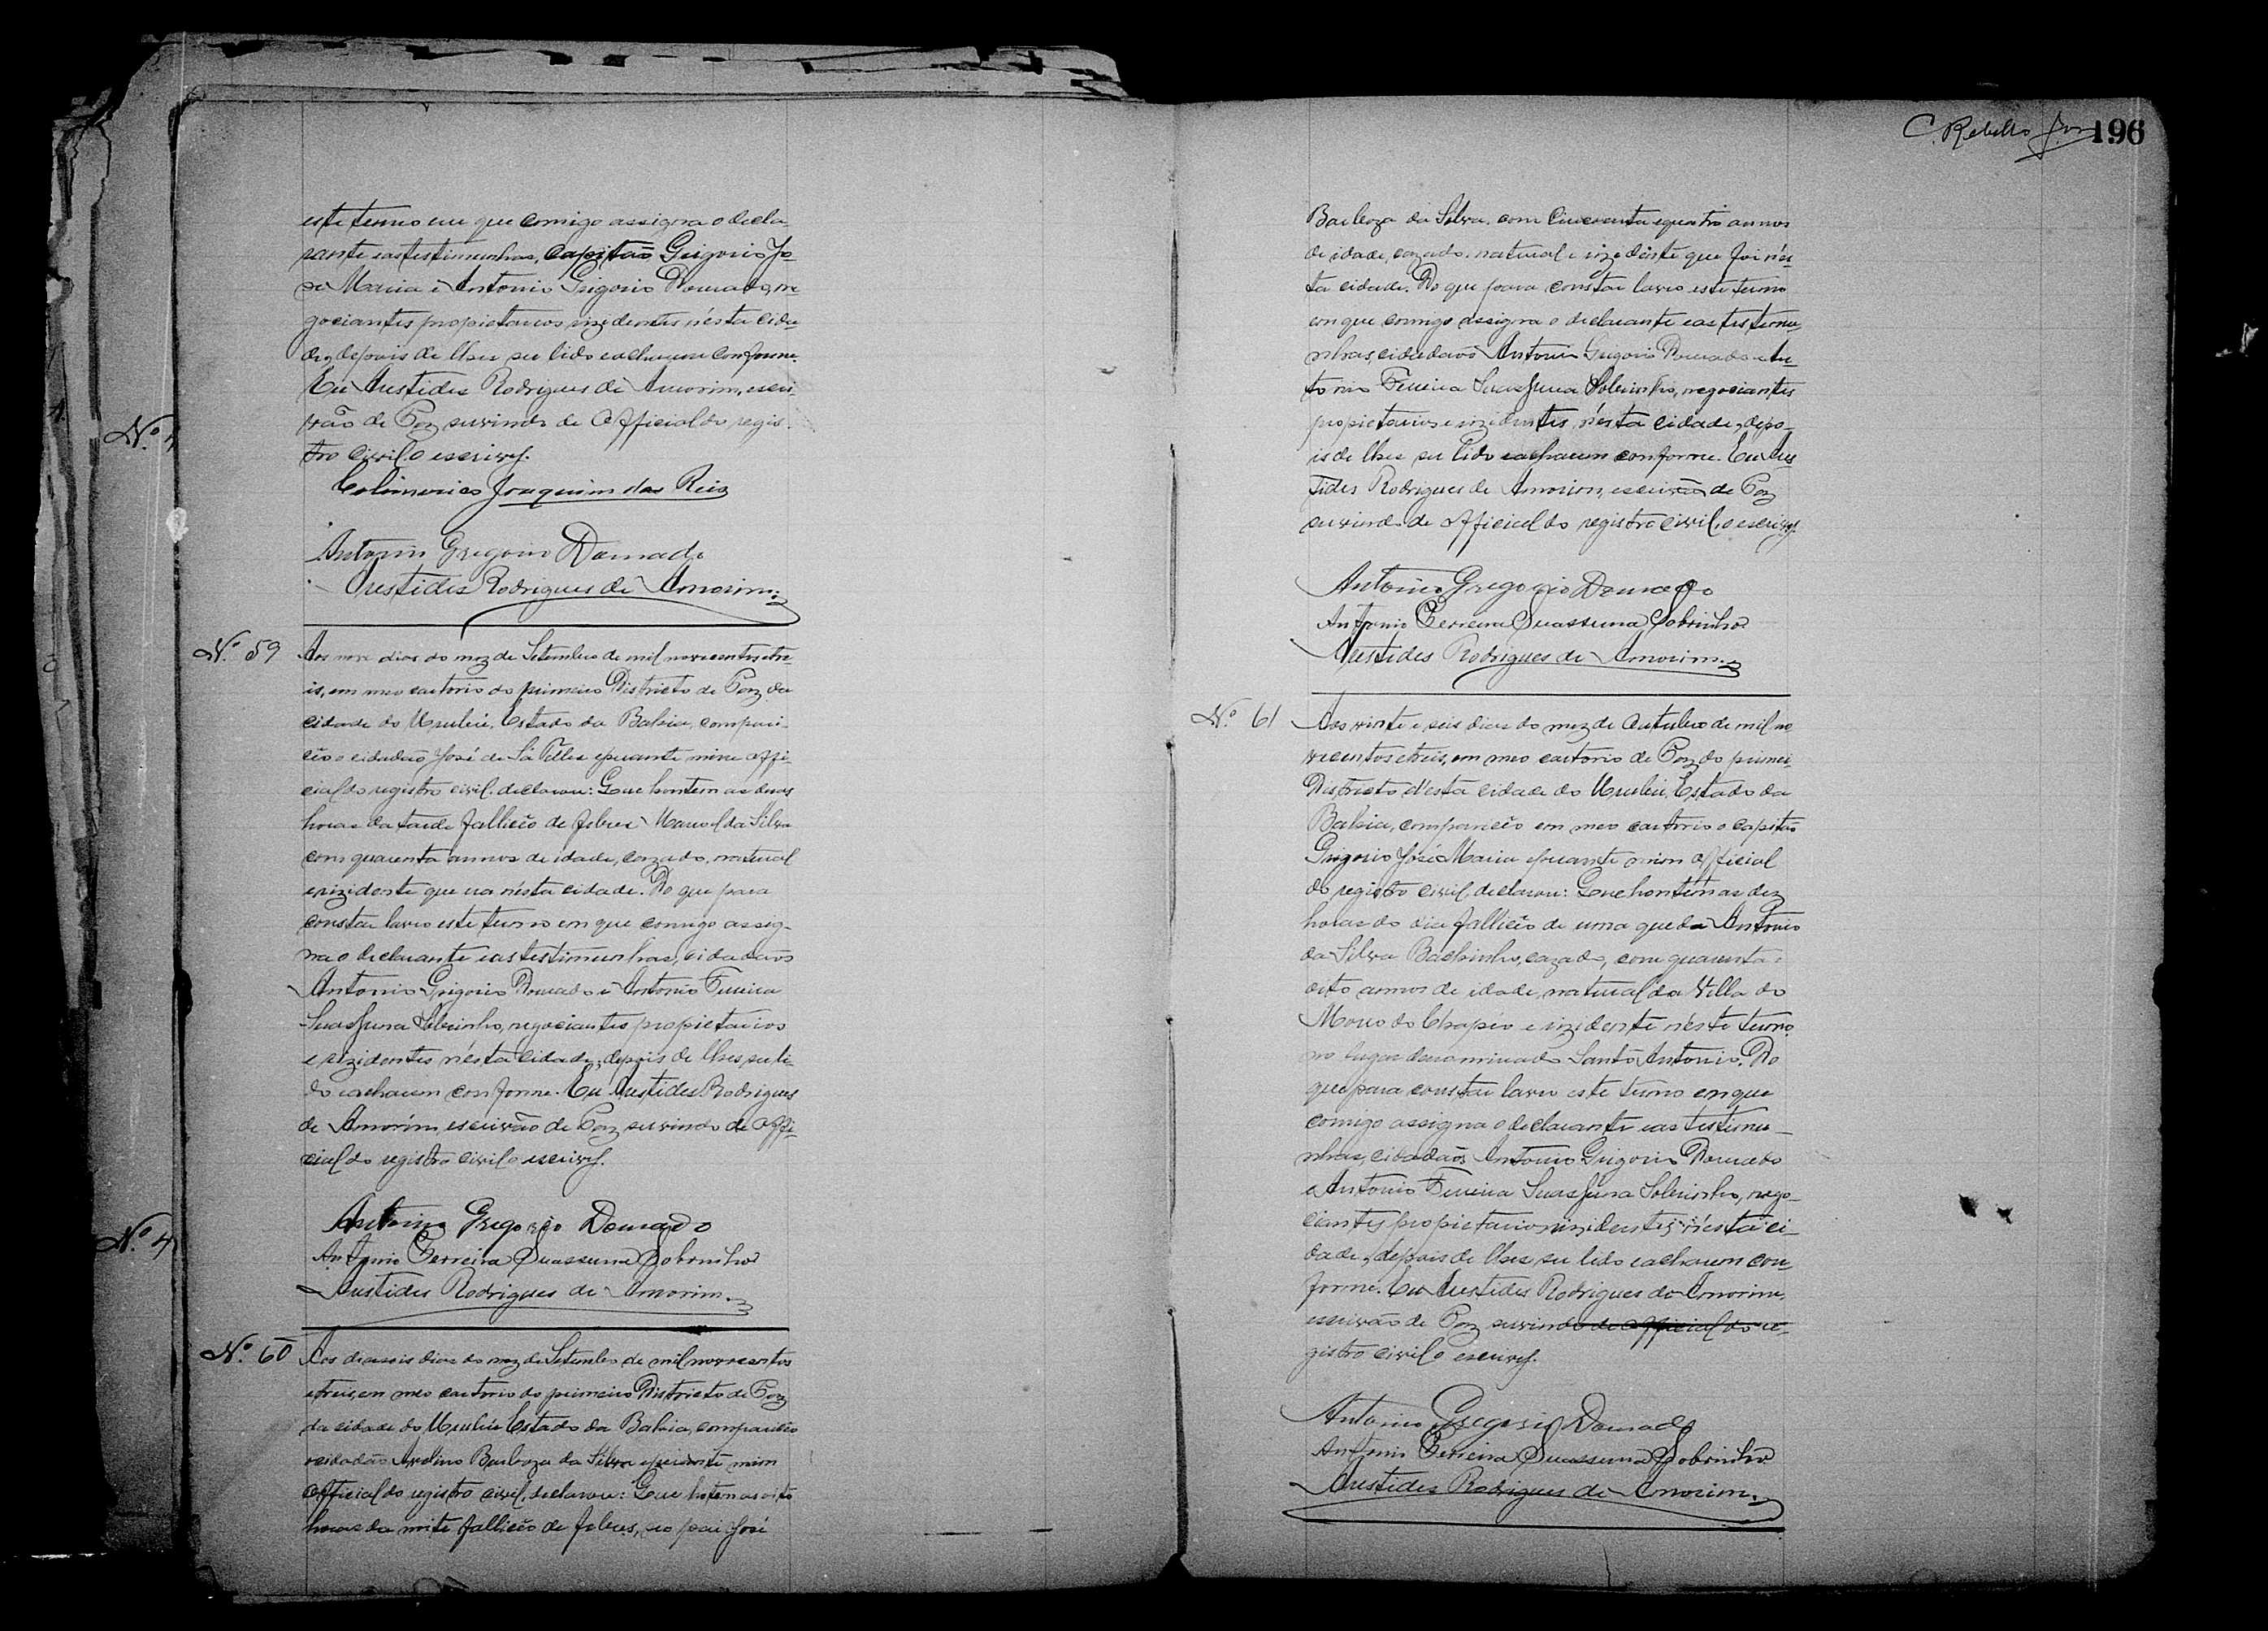 este termo em que comigo assigna o decla-
rante e as testimunhas, Capitão Grigorio Jo-
se Maria e Antonio Grigorio Dourado, ne-
gociantes propietarios rezidentes nésta cida-
de, depois de lhes ser lido e acharem conforme.
Eu Aristides Rodrigues de Amorim, escri-
vão de Paz servindo de Official do regis-
tro Civil o escrivy.
Joaquim dos Reis
Antonio Gregorio Dourado
Aristides Rodrigues de Amorim
Nº 59
Aos nove dias do mez de Setembro de mil novecentos e tre-
is, em meo cartorio do primeiro Districto de Paz da
cidade do Urubú, Estado da Bahia, compari-
cêo o cidadão José de Sá Telles e perante mim offi-
cial do registro civil, declarou: Que hontem as duas
horas da tarde fallicêo de febres Manoel da Silva
com quarenta annos de idade, cazado, natural
e rezidente que era nésta cidade. Do que para
constar lavro este termo em que comigo assig-
na o declarante e as testimunhas, cidadãos
Antonio Grigorio Dourado e Antonio Ferreira
Suassuna Sobrinho, negociantes propietarios
e rezidentes nésta cidade, depois de lhes ser li-
do e acharem conforme. Eu Aristides Rodrigues
de Amorim, escrivão de Paz servindo de offi-
cial do registro civil o escrivy.
Antonio Gregorio Dourado
Antonio Ferreira Suassuna Sobrinho
Aristides Rodrigues de Amorim.
Nº 60
Aos deseseis dias do mez de Setembro de mil novecentos
e treis, em meo cartorio do primeiro Districto de Paz
da cidade do Urubú Estado da Bahia, comparicêo
o cidadão Avelino Barboza da Silva e perante mim
Official do registro civil, declarou: Que hotem as oito
horas da noite fallicêo de febres, seo pai José
C. Rebello Jor 196
Barboza da Silva, com cincoenta e quatro annos
de idade, cazado, natural e rezidente que foi nés-
ta cidade. Do que para constar lavro este termo
em que comigo assigna o declarante e as testemu-
nhas, cidadãos Antonio Grigorio Dourado e An-
tonio Ferreira Suassuna Sobrinho, negociantes
propietarios e rezidentes, nésta cidade, depo-
is de lhes ser lido e acharem conforme. Eu Aris-
tides Rodrigues de Amorim, escrivão de Paz
servindo de official do registro civil, o escrivy.
Antonio Gregorio Dourado
Antonio Ferreira Suassuna Sobrinho
Aristides Rodrigues de Amorim.
Nº 61
Aos vinte e seis dias do mez de Outubro de mil no
vecentos e treis, em meo cartorio de Paz do primei-
Districto désta cidade do Urubú, Estado da
Bahia, comparicêo em meo cartorio o capitão
Grigorio José Maria e perante mim official
do registro civil, declarou: Que hontem as dez
horas do dia fallicêo de uma queda Antonio
da Silva Bachinho, cazado, com quarenta e
oito annos de idade, natural da Villa do
Morro do Chapéo e rezidente néste termo
no lugar denominado Santo Antonio. Do
que para constar lavro este termo em que
comigo assigna o declarante e as testimu-
nhas, cidadãos Antonio Grigorio Dourado
e Antonio Ferreira Suassuna Sobrinho, nego-
ciantes propietarios rezidentes, nésta ci-
dade, depois de lhes ser lido e acharem con-
forme. Eu Aristides Rodrigues de Amorim,
escrivão de Paz servindo de official do re-
gistro civil o escrivy.
Antonio Gregorio Dourado
Antonio Ferreira Suassuna Sobrinho
Aristides Rodrigues de Amorim.